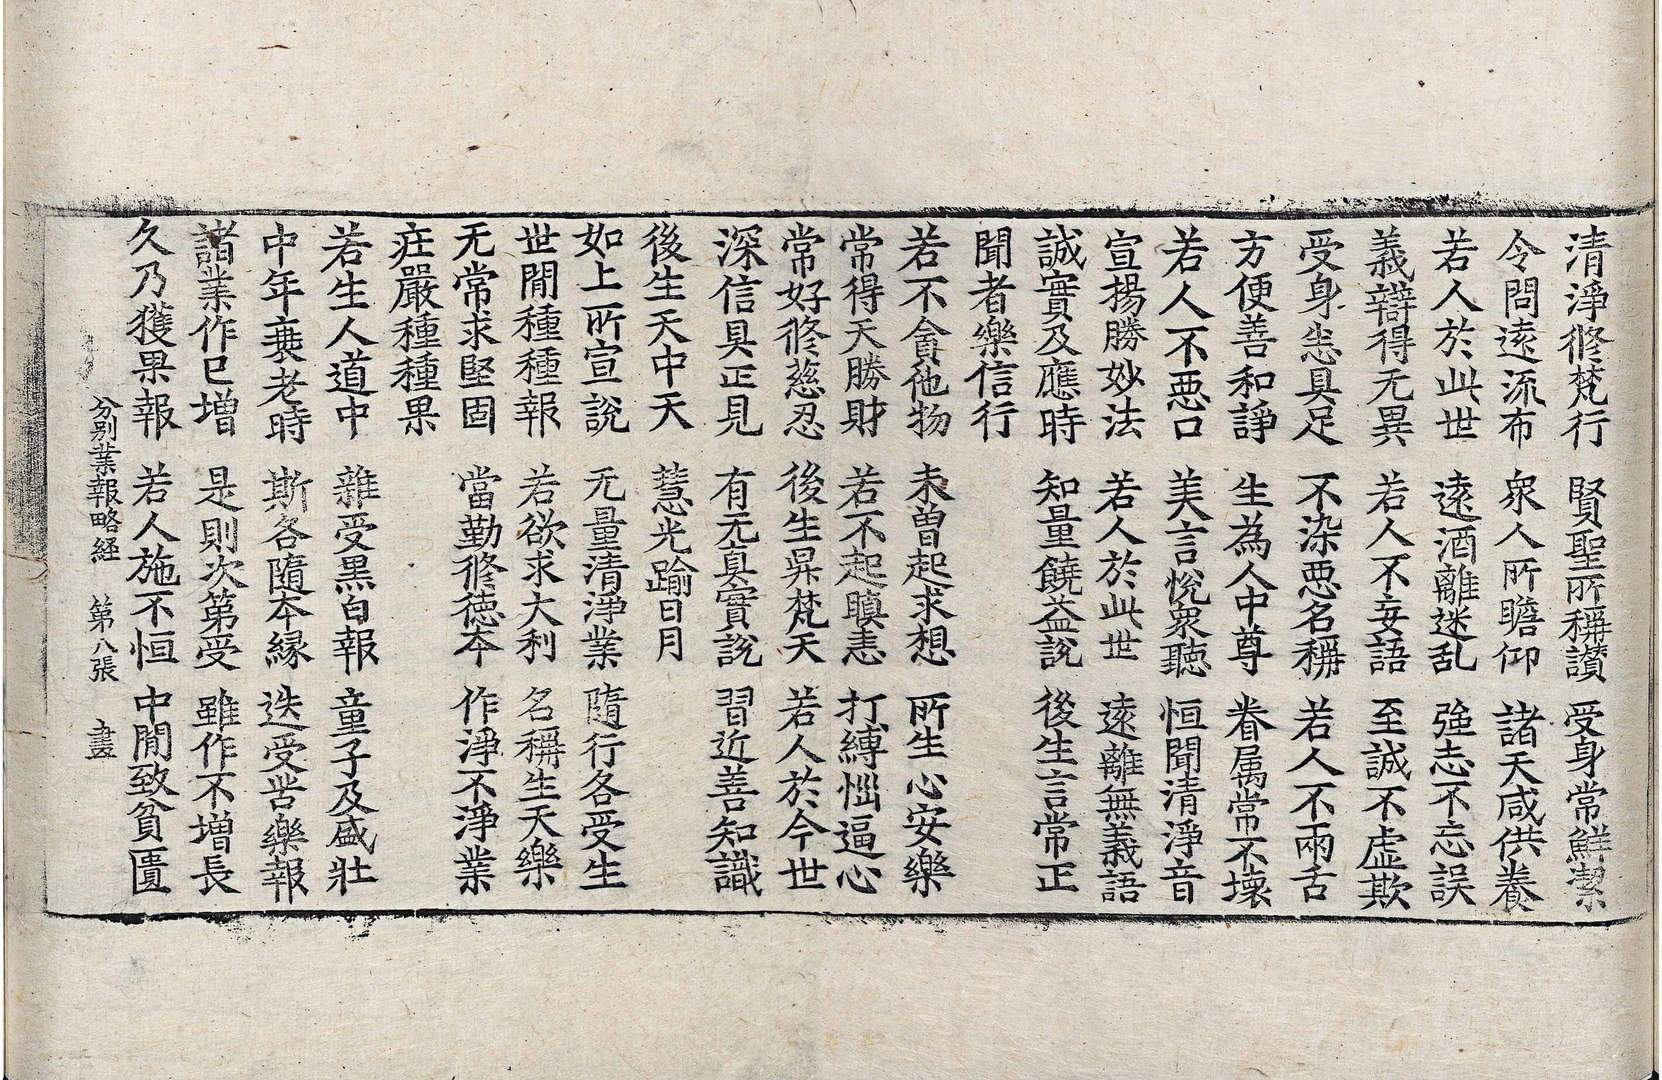 清淨修梵行 賢聖所稱讃 受身常鮮潔
令問遠流布 衆人所瞻仰 諸天咸供養
若人於此世 遠酒離迷乱 強志不忘誤
義辯得无異 若人不妄語 至誠不虛欺
受身恙具足 不染惡名稱 若人不兩舌
方便善和諍 生為人中尊 眷属常不壞
若人不惡口 美言悅衆聽 恒聞清淨音
宣揚勝妙法 若人於此世 遠離無義語
誠實及應時 知量饒益說 後生言常正
聞者樂信行
若不貪他物 未曾起求想 所生心安樂
常得天勝財 若不起瞋恚 打縛惱逼心
常好修慈忍 後生昇梵天 若人於今世
深信具正見 有无真實說 習近善知識
後生天中天 慧光踰日月
如上所宣說 无量清淨業 隨行各受生
世閒種種報 若欲求大利 名稱生天樂
无常求堅固 當勤修德夲 作淨不淨業
莊嚴種種果
若生人道中 雜受黒白報 童子及盛壯
中年衰老時 斯各隨夲縁 迭受苦樂報
諸業作已增 是則次第受 雖作不增長
久乃獲果報 若人施不恒 中閒致貧匱
分別業報略経 第八張 畫